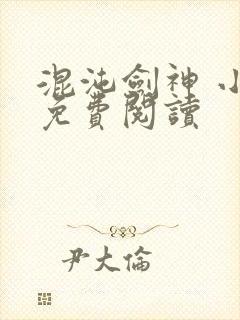 混沌劍神 小
免費閱讀
尹大倫